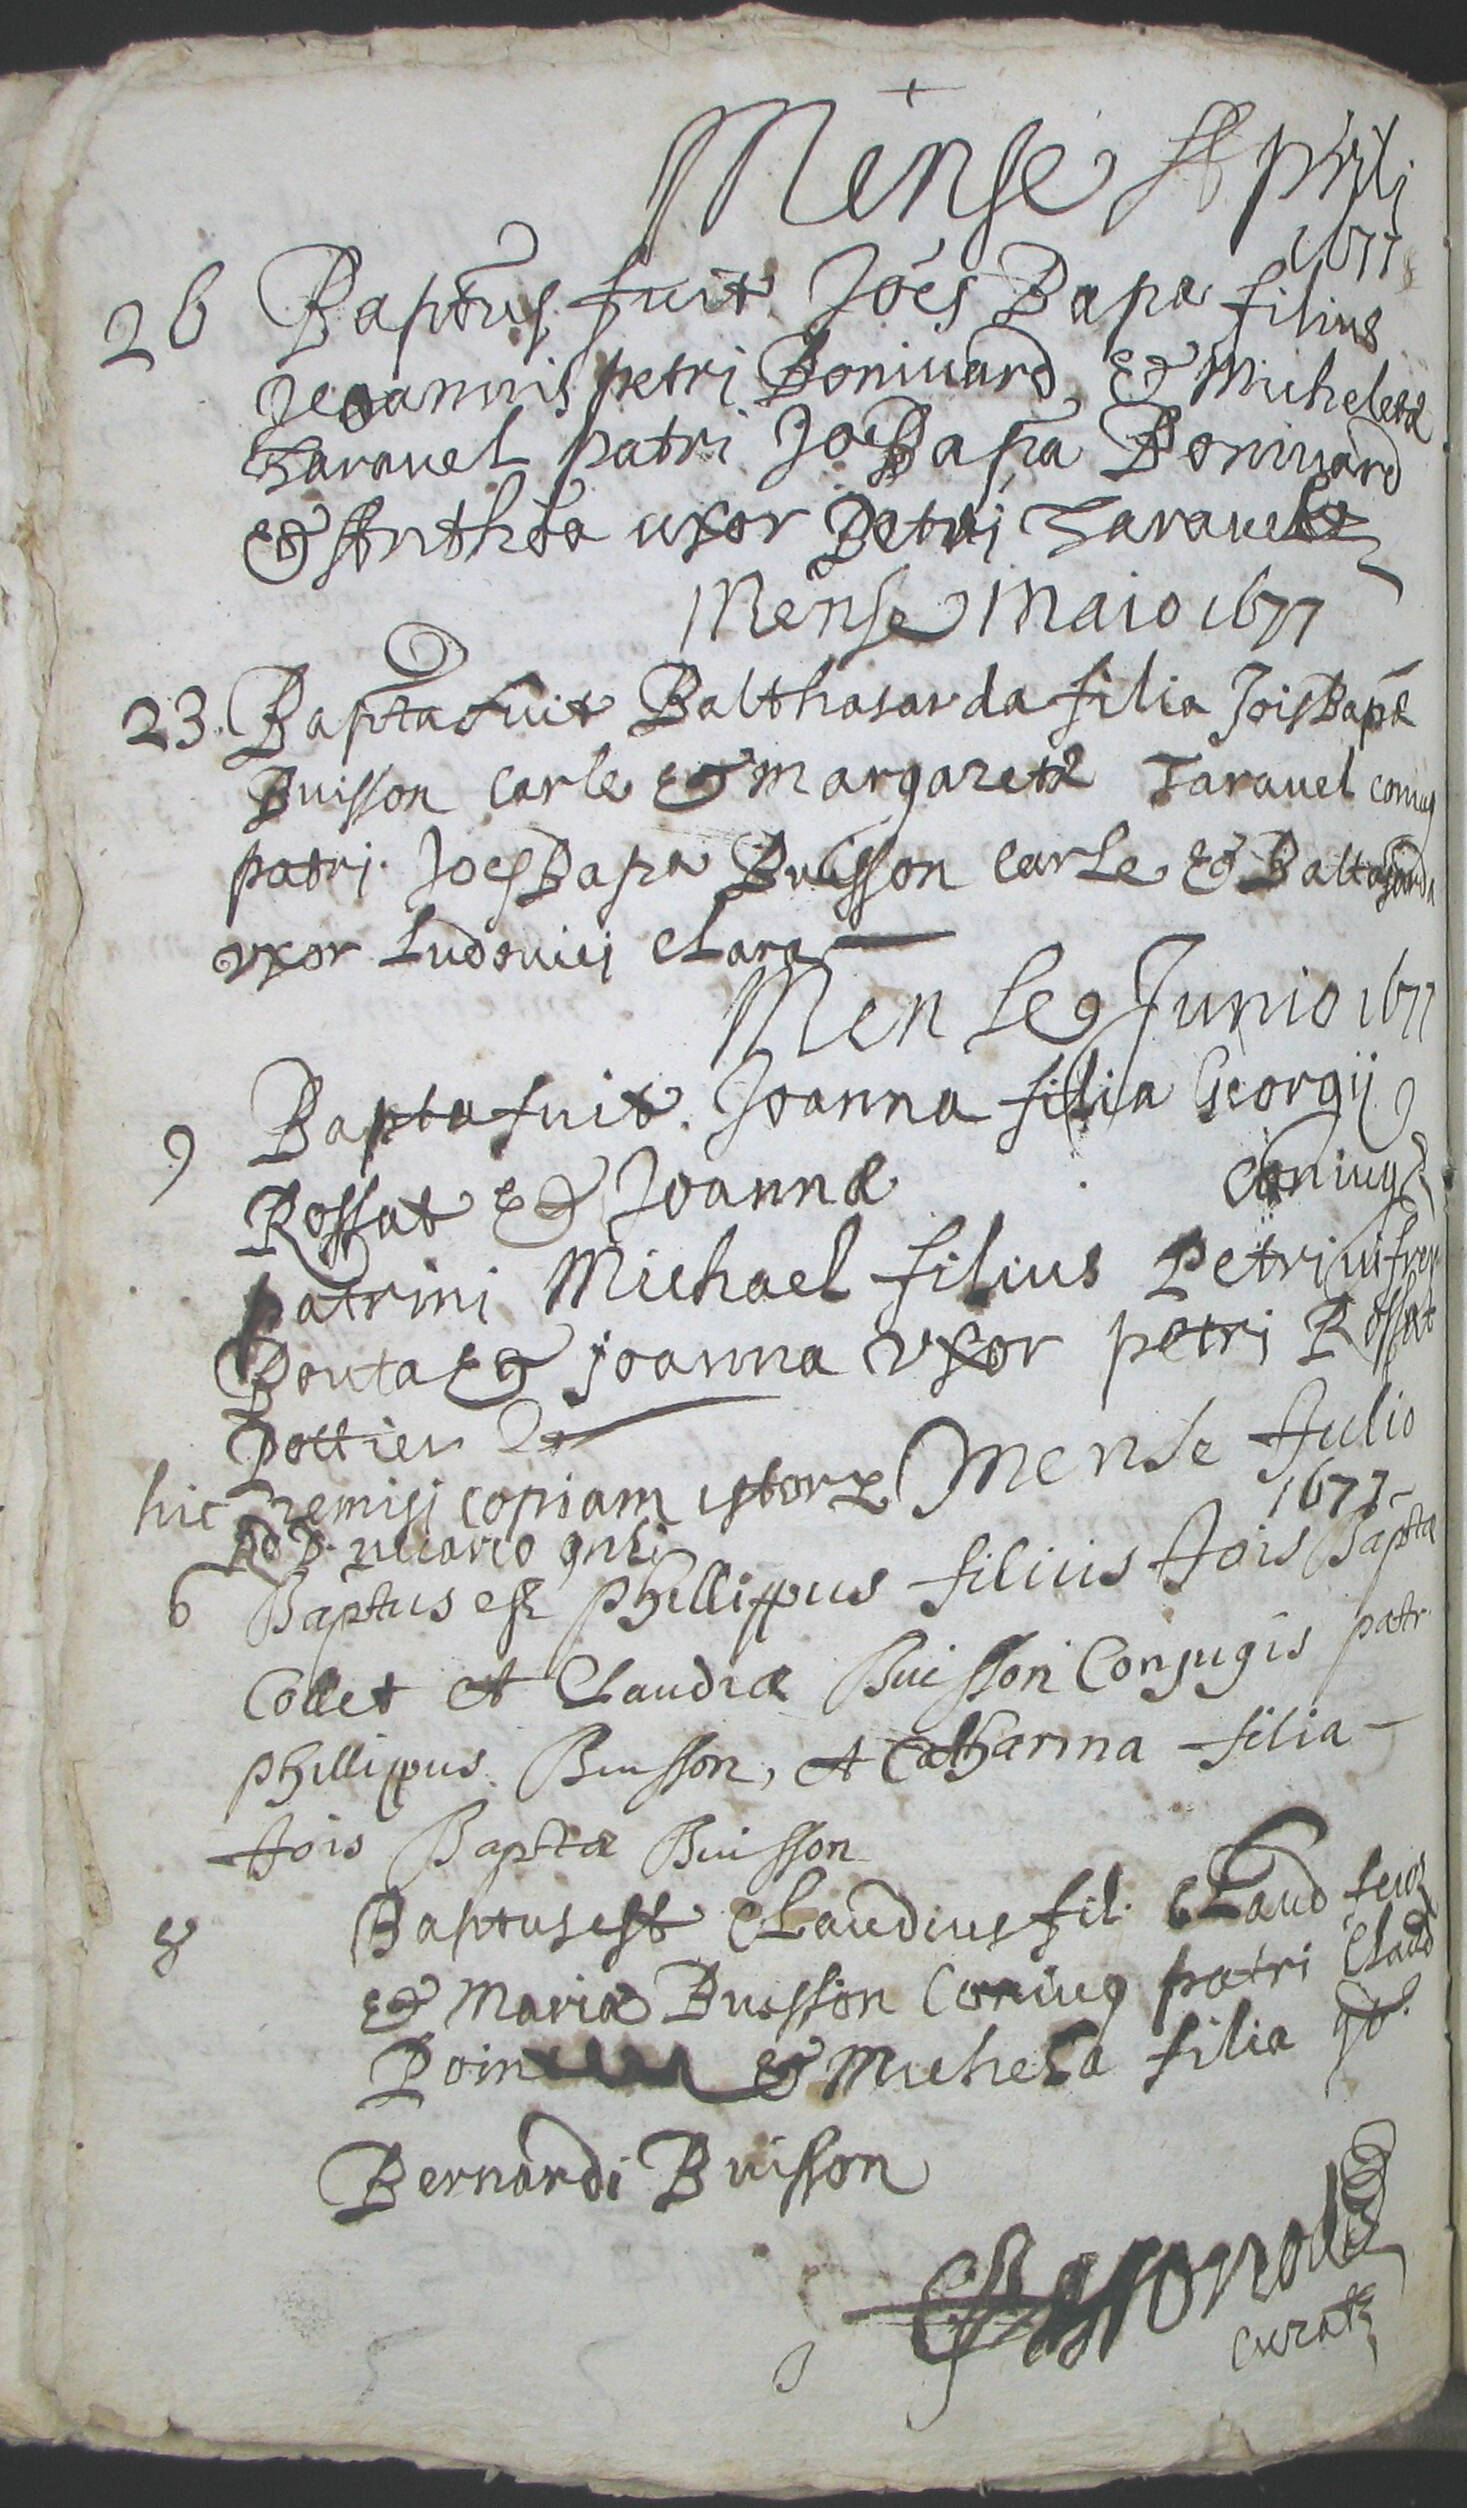 Mense Aprili
1677
26 Baptus fuit Joes Bapa filius
Jeoannis petri Boniuard & Micheletæ
Tarauel patri Jo Bapa Boniuard
& Antha uxor Petri Tarauel
Mense Maio 1677
23. Bapta fuit Balthasarda filia Jois Bapæ
Buisson Carle & Margaretæ Tarauel coniug
patri. Joes Bapa Buisson Carle & Baltasarda
vxor Ludouici Clara
Mense Junio 1677
9 Bapta fuit Joanna filia Georgij
Rossat & Joannæ coniug
patrini Michael filius Petri
Bouta & joanna vxor petri Rossat
Pottier
hic remisi copiam istorx Mense Julio
1677
6 Baptus est Phillippus filius Jois Baptæ
Collet et Claudiæ Buisson Conjugis patr.
Phillippus Buisson, et Catharina filia
Jois Baptæ Buisson
8 Baptus est Claudius fil. Claud
& Mariæ Buisson Coniug patri Claud
& Michela filia qd.
Bernardi Buisson